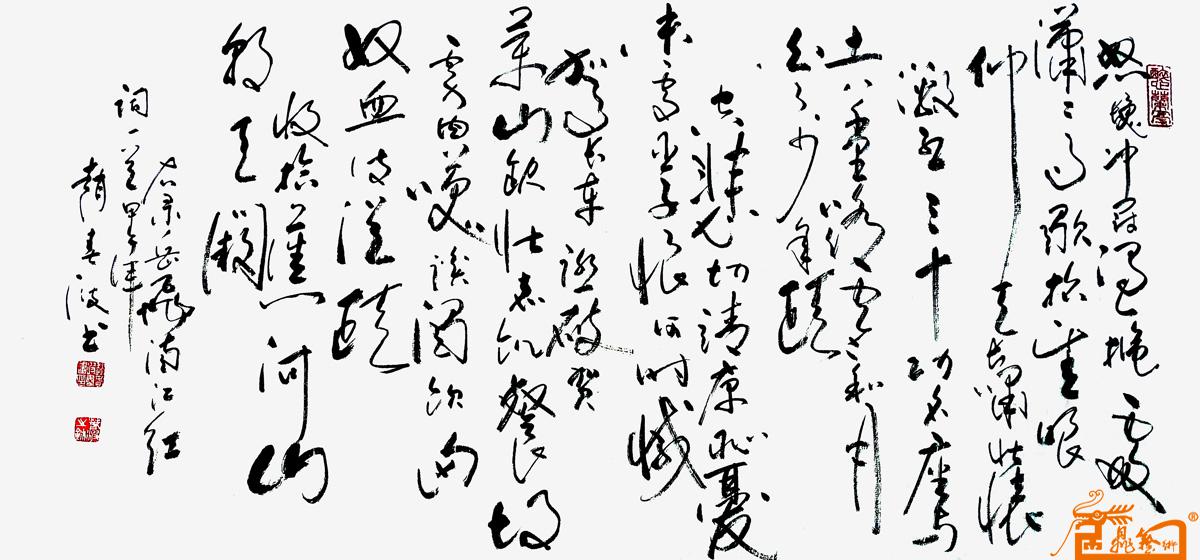 怒髮冲冠凭栏處
潇潇雨歇抬望眼
仰天长啸壮怀
激烈三十功名塵与
土八千里路雲和月
白了少年頭
空悲切靖康耻
未雪臣子恨何时滅
驾长车踏破贺
兰山缺壮志饥餐胡
虏肉笑谈渴饮匈
奴血待從頭
收拾舊河山
朝天闕
右录岳飛满江红
词一首甲子年
趙春波书